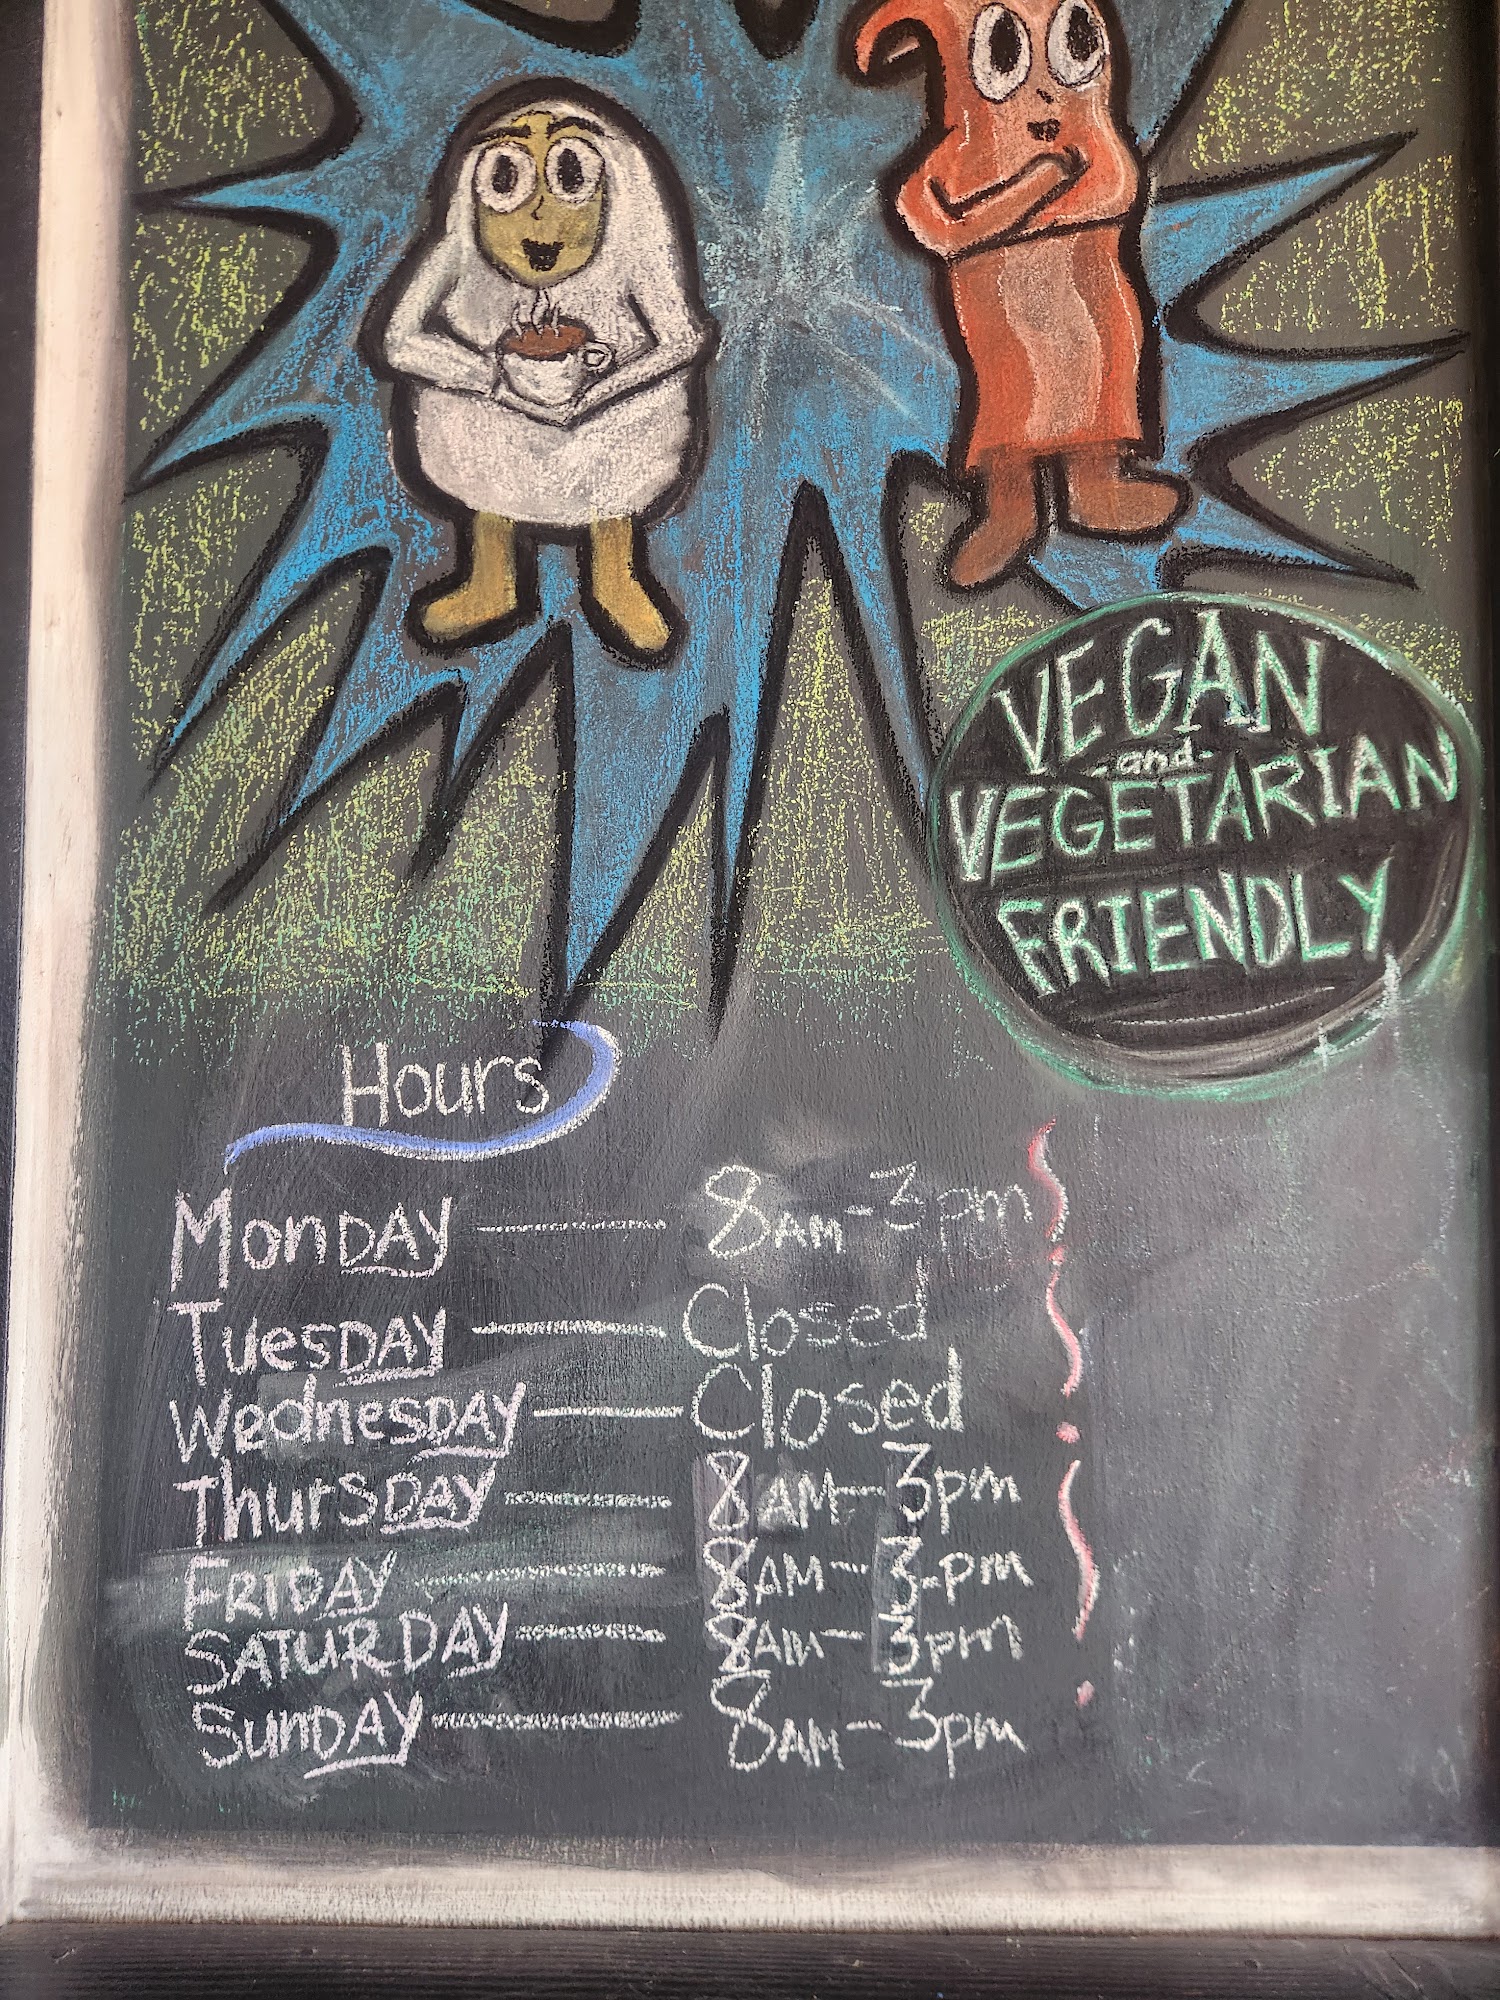 VEGAN
-and-
VEGETARIAN
FRIENDLY
Hours
MonDAY 8AM-3pm
TuesDAY Closed
WednesDAY Closed
ThursDAY 8AM-3pm
FRIDAY 8AM-3pm
SATURDAY 8AM-3pm
SunDAY 8AM-3pm